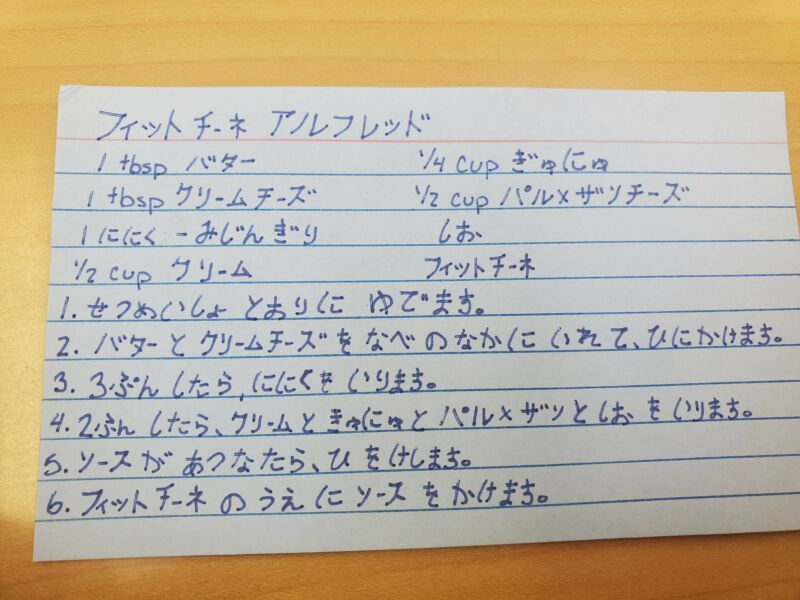 フィットチーネ アルフレッド
1 tbsp バター 1/4 cup ぎゅにゅ
1 tbsp クリームチーズ 1/2 cup パルメザンチーズ
1 ににく - みじんぎり しお
1/2 cup クリーム フィットチーネ
1. せつめいしょ とおりに ゆでます。
2. バターと クリームチーズを なべの なかに いれて、ひにかけます。
3. 3ぷん したら、ににくを いります。
4. 2ふん したら、クリームと ぎゅにゅと パルメザンと しおを いります。
5. ソースが あつなたら、ひを けします。
6. フィットチーネの うえに ソースを かけます。